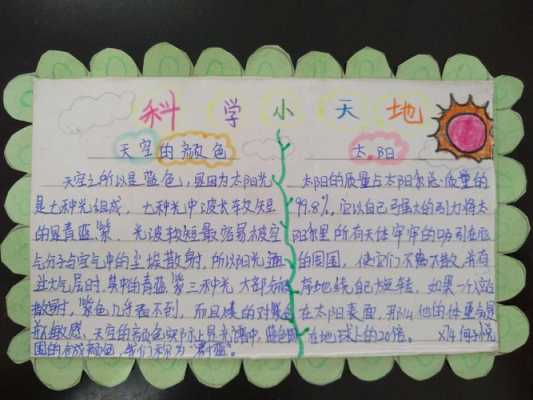 科学小天地
天空的颜色
天空之所以是蓝色，是因为太阳光
是七种光组成，七种光中波长较短
的是青蓝紫，光波较短最容易被空
气分子与空气中的尘埃散射，所以阳光
过大气层时，其中的青蓝紫三种光大部分
散射，紫色几乎看不到，而且 的对蓝色
敏感。天空的颜色实际上是 蓝色
围的合成颜色，我们称为"蔚蓝"。
太阳
太阳的质量占太阳系总质量的
99.8%，它以自己强大的引力将太
阳系里所有天体牢牢的吸引在
的周围，使它们不 不散，井
有序地绕自己旋转，如果一个
在太阳表面，那么他的体重
在地球上的20倍。